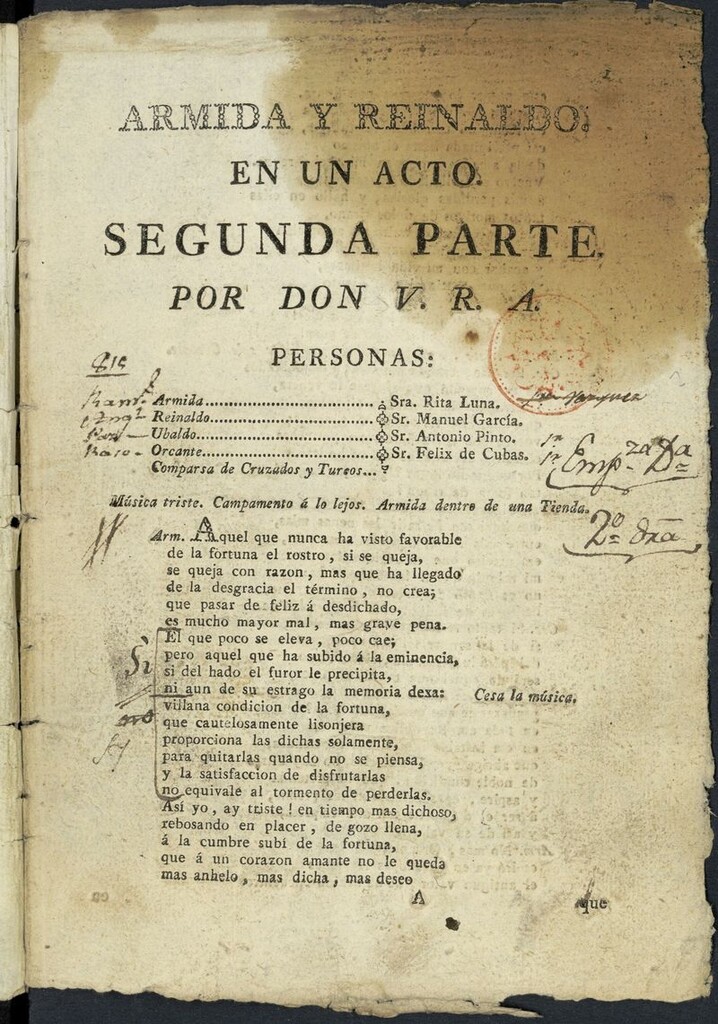 ARMIDA Y REINALDO.
EN UN ACTO.
SEGUNDA PARTE.
POR DON V. R. A.
PERSONAS:
Armida.................................... Sra. Rita Luna.
Reinaldo.................................. Sr. Manuel García.
Ubaldo.................................... Sr. Antonio Pinto.
Orcante................................... Sr. Felix de Cubas.
Comparsa de Cruzados y Turcos...
Música triste. Campamento á lo lejos. Armida dentro de una Tienda.
Arm. Aquel que nunca ha visto favorable
de la fortuna el rostro, si se queja,
se queja con razon, mas que ha llegado
de la desgracia el término, no crea;
que pasar de feliz á desdichado,
es mucho mayor mal, mas grave pena.
El que poco se eleva, poco cae;
pero aquel que ha subido á la eminencia,
Si
si del hado el furor le precipita,
ni aun de su estrago la memoria dexa: Cesa la música.
villana condicion de la fortuna,
que cautelosamente lisonjera
proporciona las dichas solamente,
para quitarlas quando no se piensa,
y la satisfaccion de disfrutarlas
no equivale al tormento de perderlas.
Así yo, ay triste! en tiempo mas dichoso,
rebosando en placer, de gozo llena,
á la cumbre subí de la fortuna,
que á un corazon amante no le queda
mas anhelo, mas dicha, mas deseo
A que